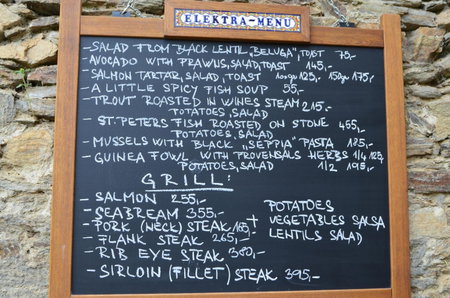 ELEKTRA-MENU
- SALAD FROM BLACK LENTIL „BELUGA", TOAST 75,-
- AVOCADO WITH PRAWNS, SALAD, TOAST 145,-
- SALMON TARTAR, SALAD, TOAST 100gr 125,- 150gr 175,-
- A LITTLE SPICY FISH SOUP 55,-
- TROUT ROASTED IN WINES STEAM 215,-
POTATOES, SALAD
- ST. PETERS FISH ROASTED ON STONE 455,-
POTATOES, SALAD
- MUSSELS WITH BLACK „SEPPIA" PASTA 185,-
- GUINEA FOWL WITH PROVENSALS HERBS 1/4 125,-
POTATOES, SALAD 1/2 195,-
GRILL:
- SALMON 255,-
- SEABREAM 355,-
- PORK (NECK) STEAK 165,-
- FLANK STEAK 265,-
- RIB EYE STEAK 380,-
- SIRLOIN (FILLET) STEAK 395,-
+ POTATOES
VEGETABLES SALSA
LENTILS SALAD